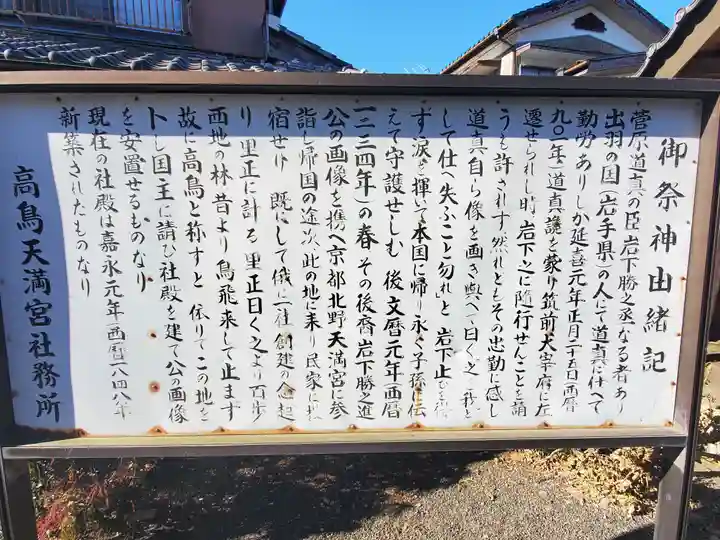 御祭神由緒記
菅原道真の臣 岩下勝之丞なる者あり
出羽の国(岩手県)の人にて道真に仕へて
勤労ありしか延喜元年正月二十五日西暦
九〇一年道真讒を蒙り筑前大宰府に左
遷せられし時 岩下之に随行せんことを請
うも許されす 然れどもその忠勤に感し
道真自ら像を画き與へて曰く之を我と
して仕へ失ふこと勿れ」と 岩下止むを得
す涙を揮いて本国に帰り永く子孫に伝
えて守護せしむ 後 文暦元年(西暦
一二三四年)の春 その後裔岩下勝之進
公の画像を携へ京都北野天満宮に参
詣し帰国の途次此の地に来り民家に投
宿せり 既にして俄に一社創建の念起
り 里正に計る 里正曰く之より百歩
西地の林 昔より鳥飛来して止ます
故に高鳥と称すと 依りてこの地を
卜し国主に請ひ社殿を建て公の画像
を安置せるものなり
現在の社殿は嘉永元年(西暦一八四八年
新築されたものなり
高鳥天満宮社務所